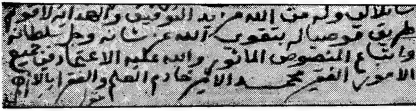 سايلا لى وله من الله مزيد التوفيق والهدايه لاقوم
طريق موصيا له بتقوى الله عز شانه وجل سلطانه
واتباع المنصوص الماثور والله عليه الاعتماد فى جميع
الامور الفقير محمد الامير خادم العلم والفقرا بالازهر